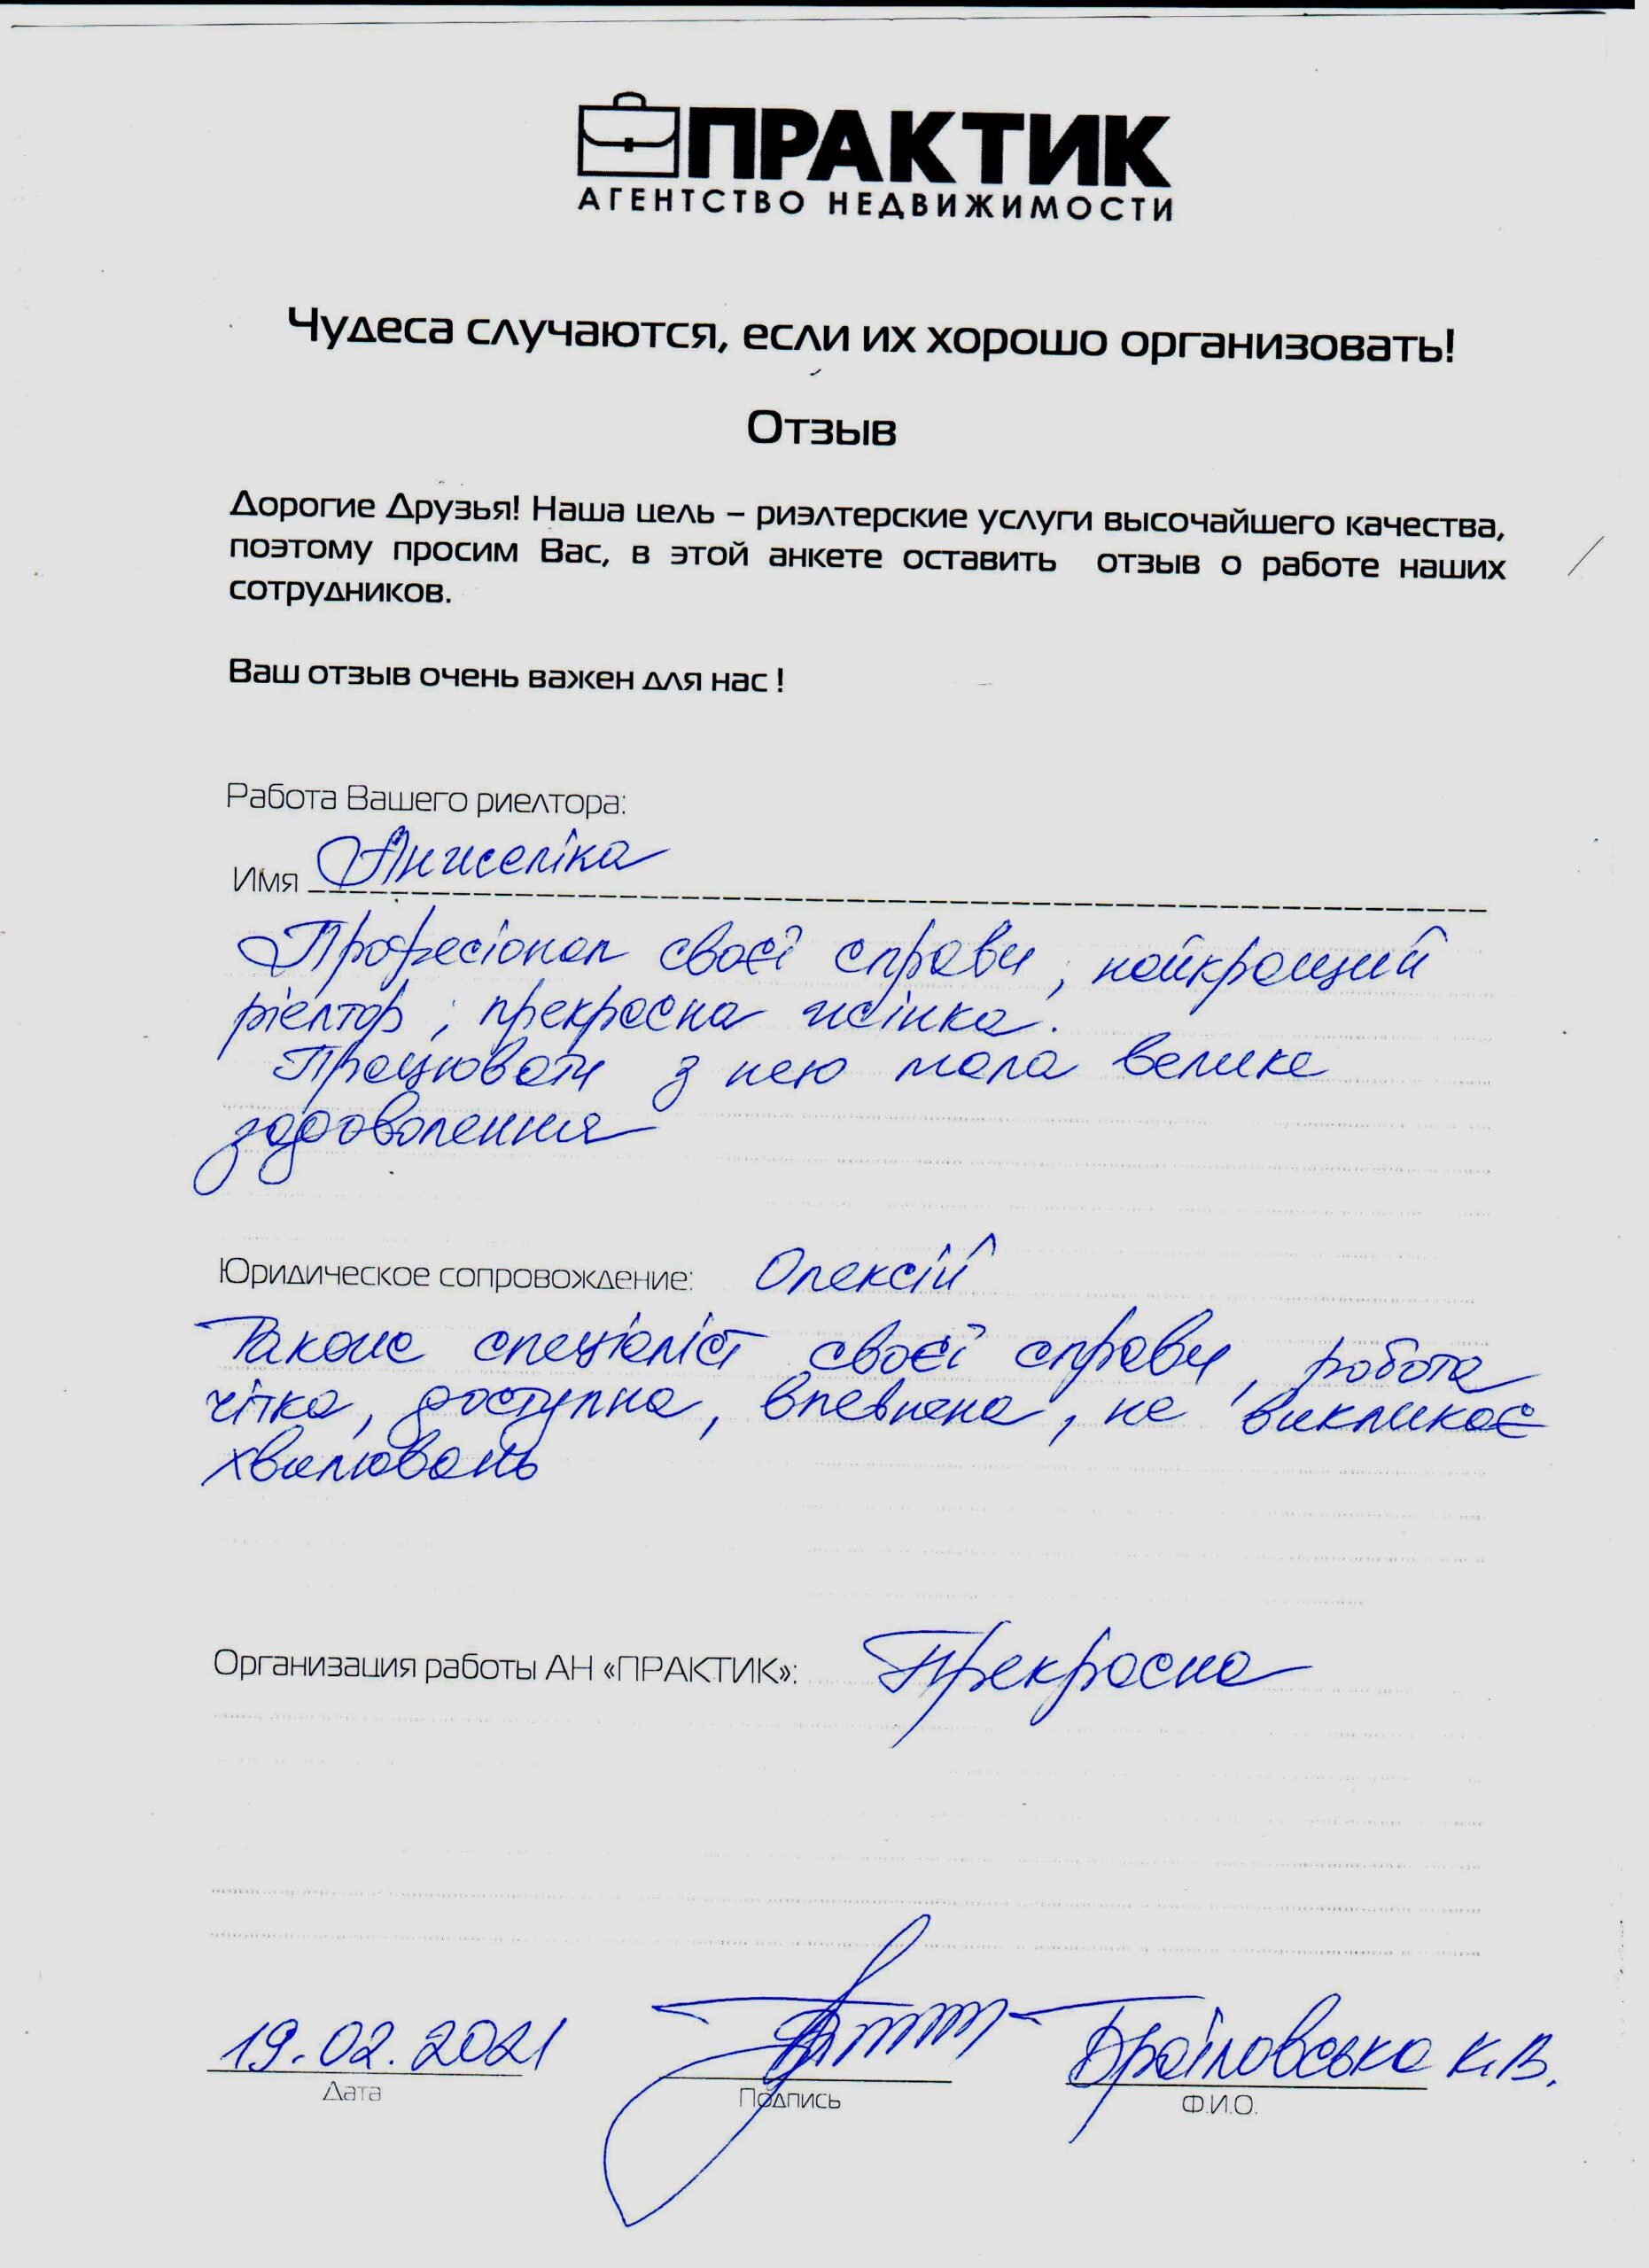 ПРАКТИК
АГЕНТСТВО НЕДВИЖИМОСТИ
Чудеса случаются, если их хорошо организовать!
Отзыв
Дорогие Друзья! Наша цель – риэлтерские услуги высочайшего качества,
поэтому просим Вас, в этой анкете оставить отзыв о работе наших
сотрудников.
Ваш отзыв очень важен для нас !
Работа Вашего риелтора:
Имя Анжеліка
Професіонал своєї справи, найкращий
ріелтор, прекрасна жінка.
Працювати з нею мала велике
задоволення
Юридическое сопровождение: Олексій
Також спеціаліст своєї справи, робота
чітка, доступна, впевнена, не викликає
хвилювань
Организация работы АН «ПРАКТИК»: Прекрасна
19.02.2021 Браіловська К.В.
Дата Подпись Ф.И.О.